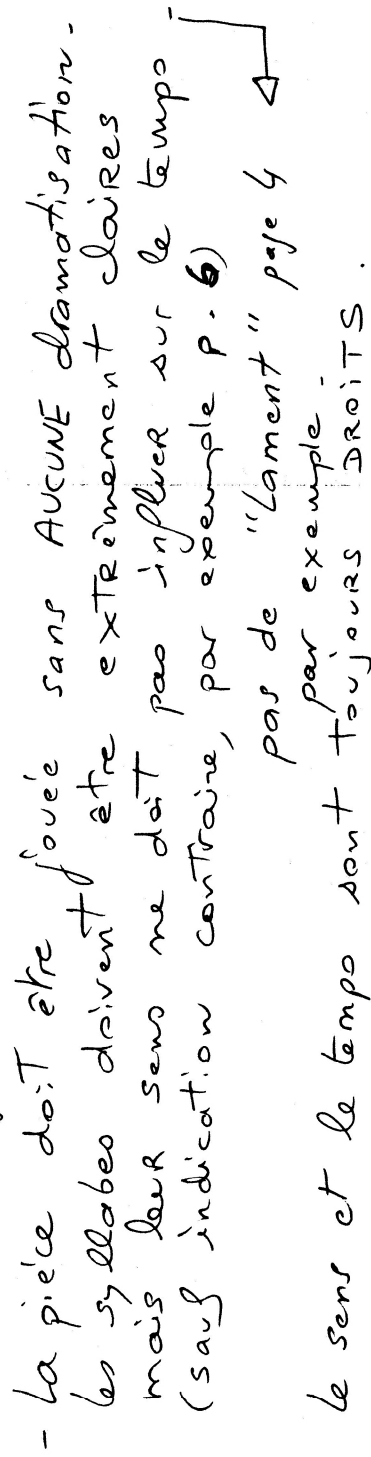 - La pièce doit être jouée sans AUCUNE dramatisation.
les syllabes doivent être extrêmement claires
mais leur sens ne doit pas influer sur le tempo -
(sauf indication contraire, par exemple p. 6)
pas de "Lament" page 4
par exemple.
le sens et le tempo sont toujours DROITS.